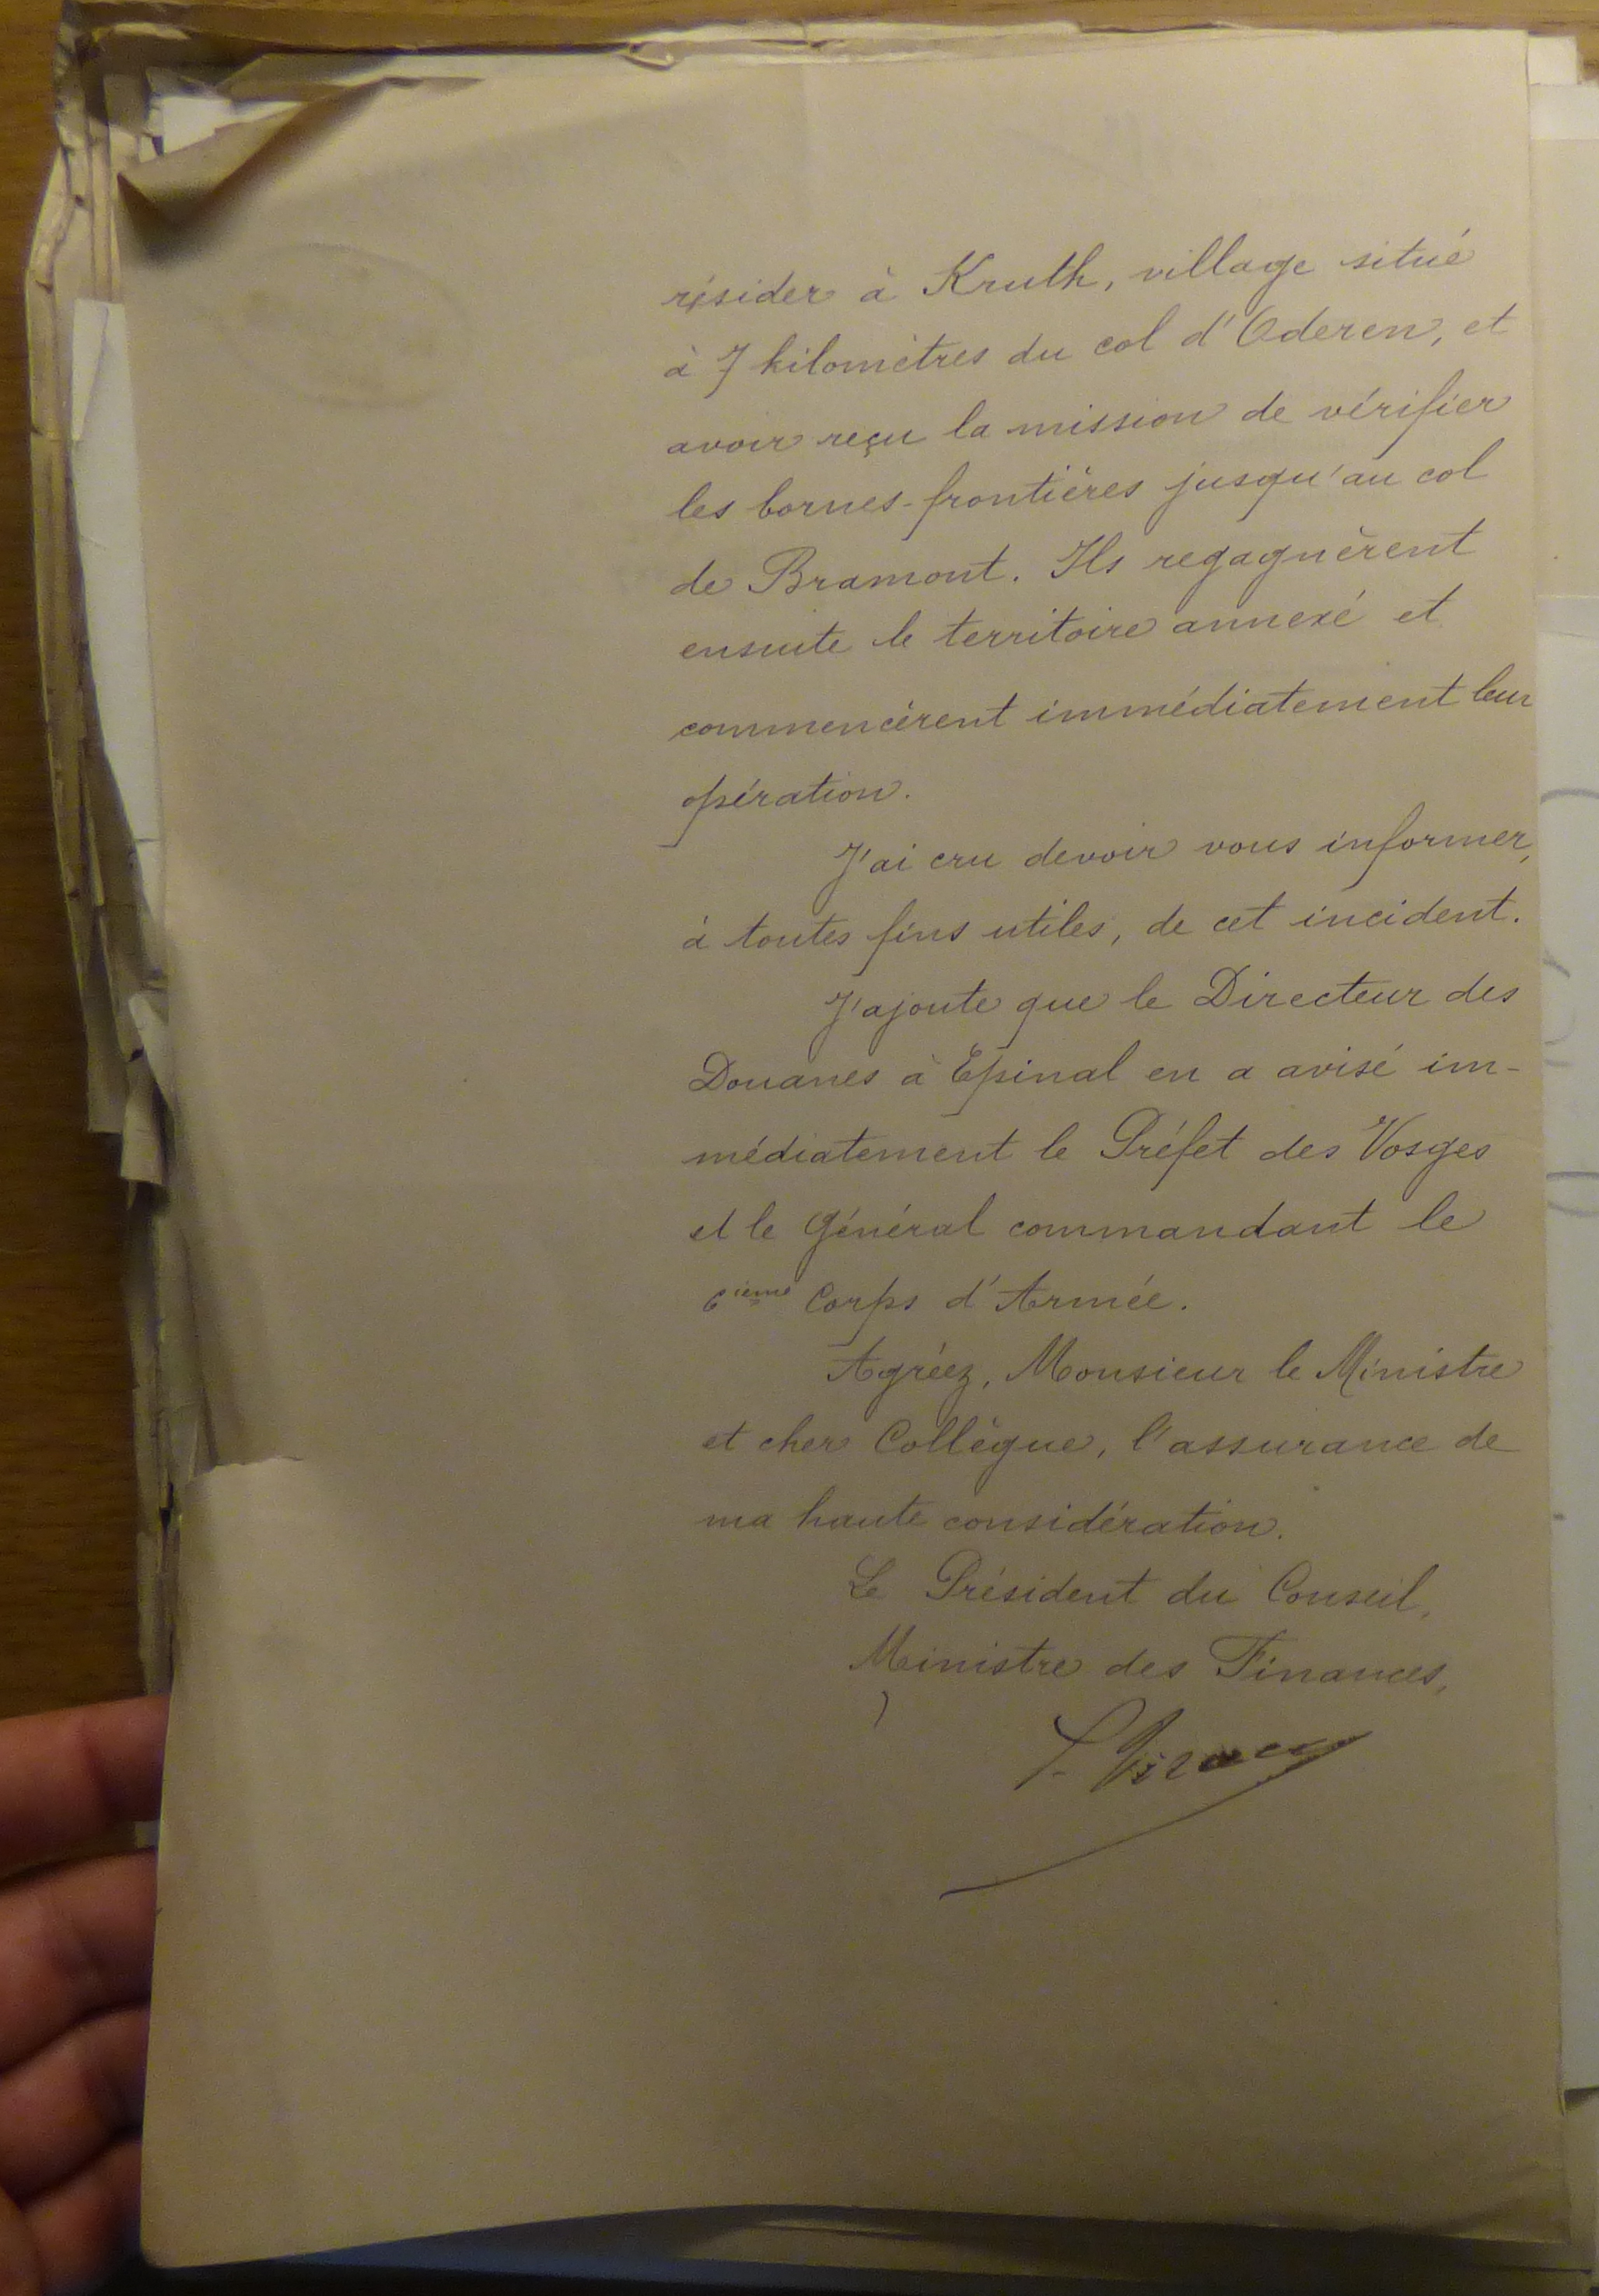 résider à Kruth, village situé
à 7 kilomètres du col d'Oderen, et
avoir reçu la mission de vérifier
les bornes-frontières jusqu'au col
de Bramont. Ils regagnèrent
ensuite le territoire annexé et
commencèrent immédiatement leur
opération.
J'ai cru devoir vous informer,
à toutes fins utiles, de cet incident.
J'ajoute que le Directeur des
Douanes à Epinal en a avisé im-
médiatement le Préfet des Vosges
et le Général commandant le
6ième Corps d'Armée.
Agréez, Monsieur le Ministre
et cher Collègue, l'assurance de
ma haute considération.
Le Président du Conseil,
Ministre des Finances,